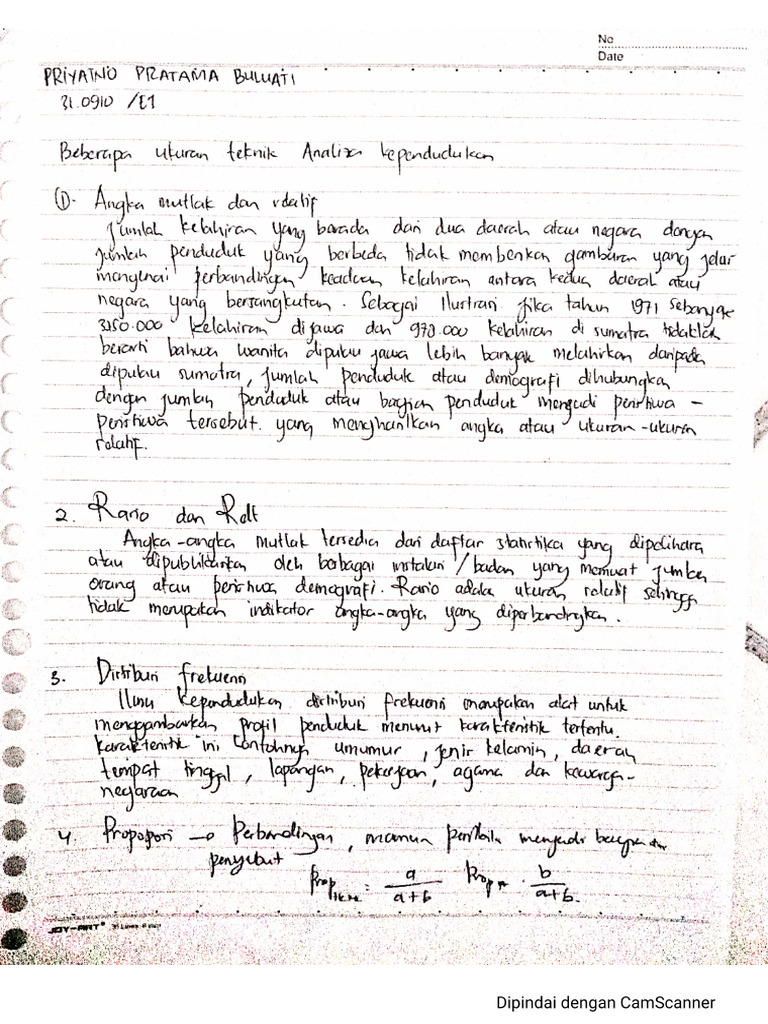 No
Date
PRIYATNO PRATAMA BULUATI
31.0910 /E1
Beberapa ukuran teknik Analisa kependudukan
1. Angka mutlak dan relatif
Jumlah kelahiran yang berada dari dua daerah atau negara dengan
jumlah penduduk yang berbeda tidak memberikan gambaran yang jelas
mengenai perbandingan keadaan kelahiran antara kedua daerah atau
negara yang bersangkutan. Sebagai Ilustrasi jika tahun 1971 sebanyak
3150.000 kelahiran dijawa dan 970.000 kelahiran di sumatra tidaklah
berarti bahwa wanita dipulau jawa lebih banyak melahirkan daripada
dipulau sumatra, jumlah penduduk atau demografi dihubungkan
dengan jumlah penduduk atau bagian penduduk menjadi peristiwa -
peristiwa tersebut. yang menghasilkan angka atau ukuran-ukuran
relatif.
2. Rasio dan Rate
Angka-angka mutlak tersedia dari daftar statistika yang dipelihara
atau dipublikasikan oleh berbagai instalasi / badan yang memuat jumlah
orang atau peristiwa demografi. Rasio adala ukuran relatif sehingga
tidak merupakan indikator angka-angka yang diperbandingkan.
3. Distribusi frekuensi
Ilmu kependudukan distribusi frekuensi merupakan alat untuk
menggambarkan profil penduduk menurut karakteristik tertentu.
karakteristik ini contohnya umumur, jenis kelamin, daerah
tempat tinggal, lapangan, pekerjaan, agama dan kewarga-
negaraan
4. Proporsi → Perbandingan, namun menjadi
penyebut
Prop = a/(a+b) Prop = b/(a+b).
JOY-ART
Dipindai dengan CamScanner